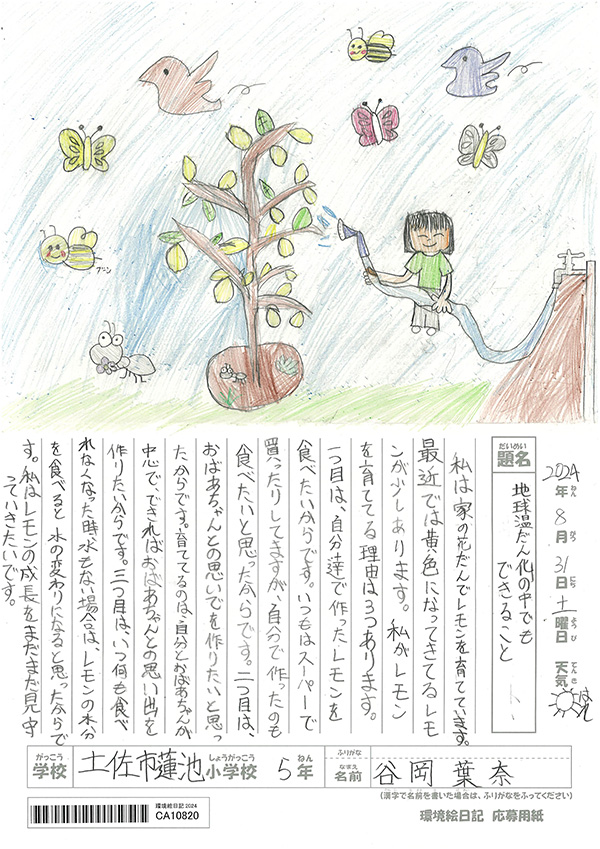 ブーン
2024年8月31日土曜日 天気 はれ
だいめい
題名
地球温だん化の中でも
できること
私は家の花だんでレモンを育てています。
最近では黄色になってきてるレモ
ンが少しあります。私がレモン
を育ててる理由は3つあります。
一つ目は、自分達で作ったレモンを
食べたいからです。いつもはスーパーで
買ったりしてますが、自分で作ったのも
食べたいと思ったからです。二つ目は、
おばあちゃんとの思いでを作りたいと思っ
たからです。育ててるのは、自分とおばあちゃんが
中心で、できればおばあちゃんとの思い出を
作りたいからです。三つ目は、いつ何も食べ
れなくなった時水もない場合は、レモンの水分
を食べると水の変わりになると思ったからで
す。私はレモンの成長をまだまだ見守
っていきたいです。
がっこう しょうがっこう ねん
学校 土佐市蓮池小学校 5年
ふりがな
なまえ
名前 谷岡葉奈
(漢字で名前を書いた場合は、ふりがなをふってください)
環境絵日記2024
CA10820
環境絵日記 応募用紙